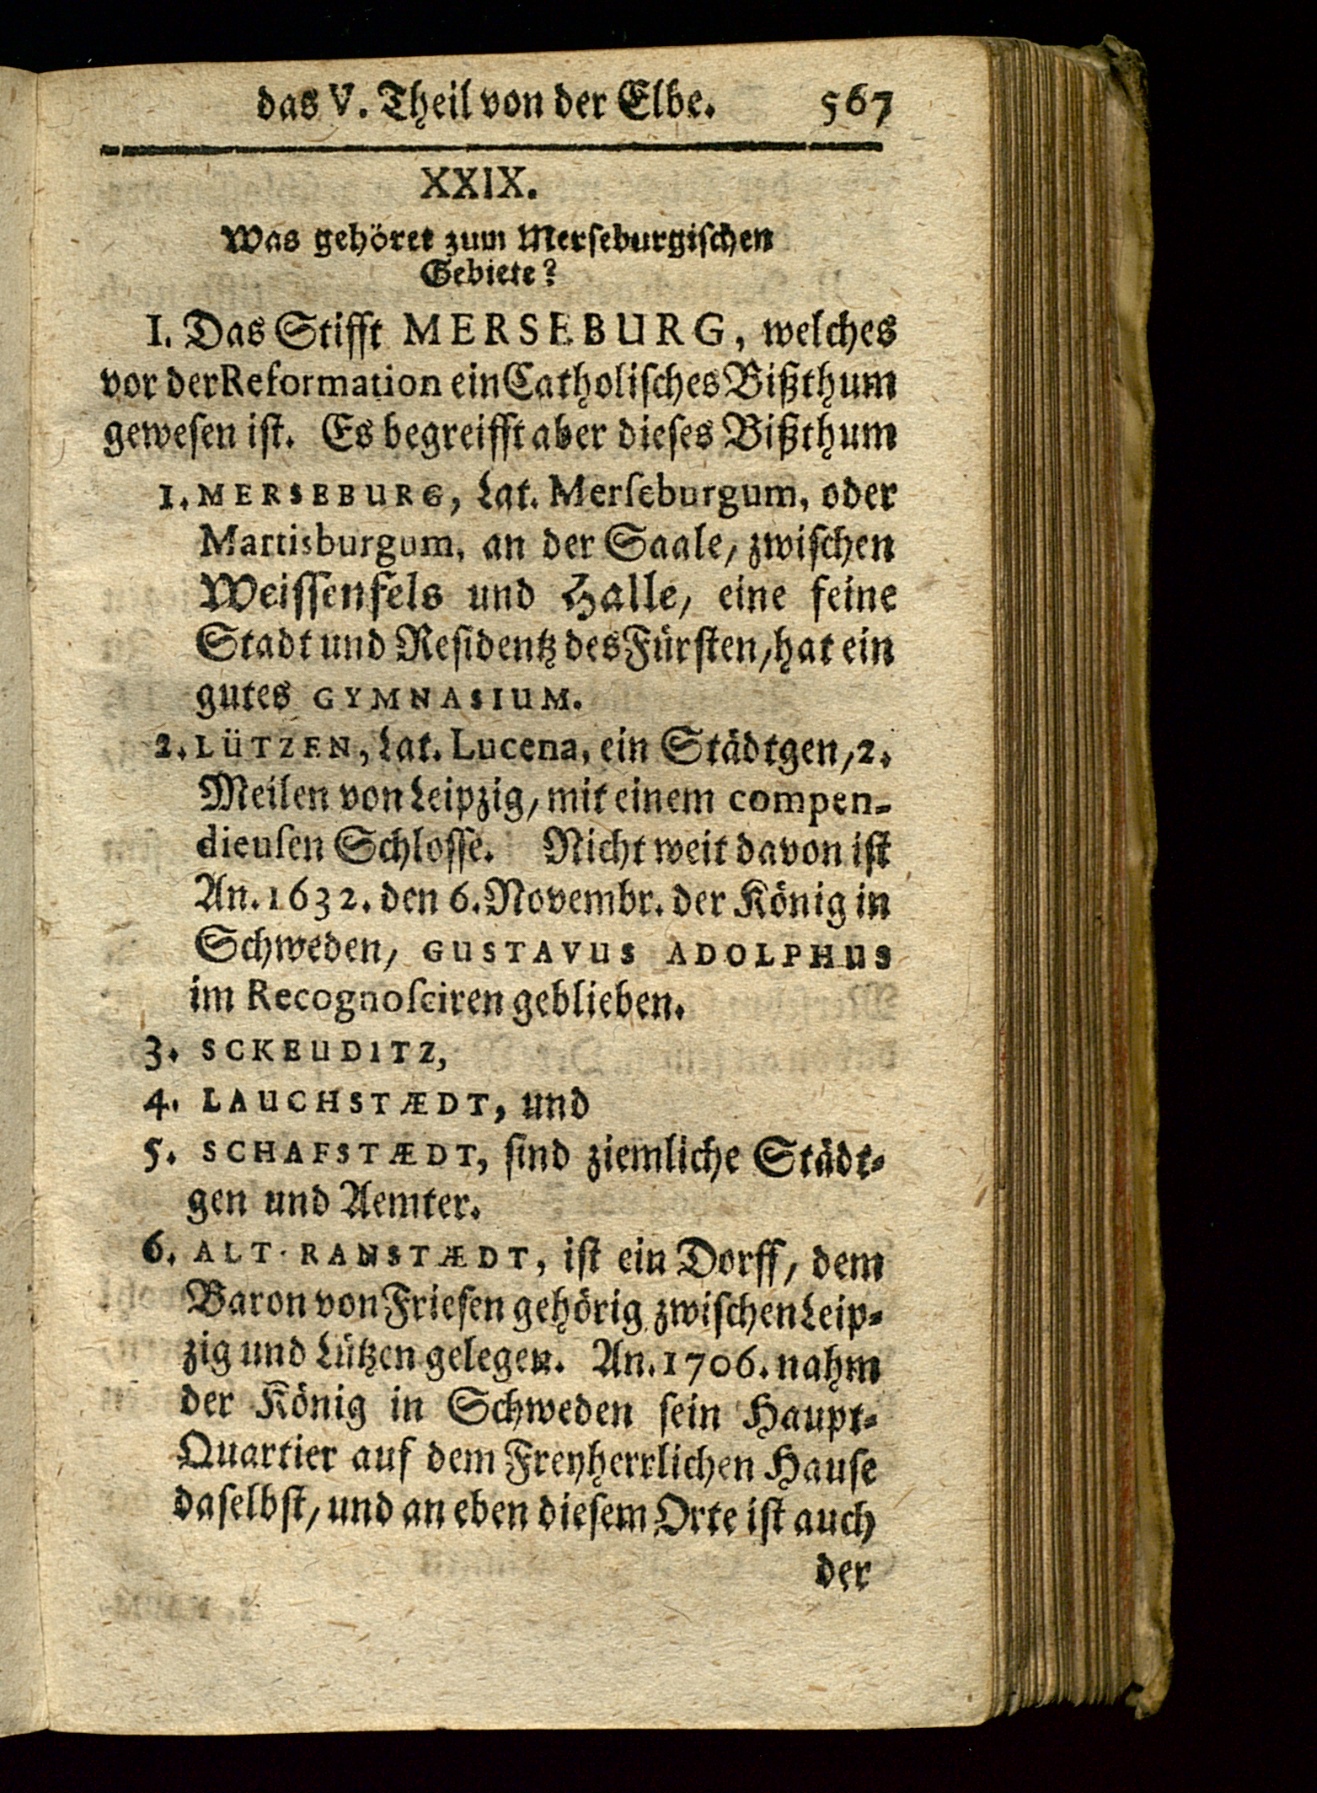 das V. Theil von der Elbe. 567
XXIX.
Was gehöret zum Merseburgischen
Gebiete?
I. Das Stifft MERSEBURG, welches
vor der Reformation ein Catholisches Bißthum
gewesen ist. Es begreifft aber dieses Bißthum
1. MERSEBURG, Lat. Merseburgum, oder
Martisburgum, an der Saale, zwischen
Weissenfels und Halle, eine feine
Stadt und Residentz des Fürsten, hat ein
gutes GYMNASIUM.
2. LÜTZEN, Lat. Lucena, ein Städtgen, 2.
Meilen von Leipzig, mit einem compen-
dieusen Schlosse. Nicht weit davon ist
An. 1632. den 6. Novembr. der König in
Schweden, GUSTAVUS ADOLPHUS
im Recognosciren geblieben.
3. SCKEUDITZ,
4. LAUCHSTÆDT, und
5. SCHAFSTÆDT, sind ziemliche Städt-
gen und Aemter.
6. ALT-RANSTÆDT, ist ein Dorff, dem
Baron von Friesen gehörig zwischen Leip-
zig und Lützen gelegen. An. 1706. nahm
der König in Schweden sein Haupt-
Quartier auf dem Freyherrlichen Hause
daselbst, und an eben diesem Orte ist auch
der